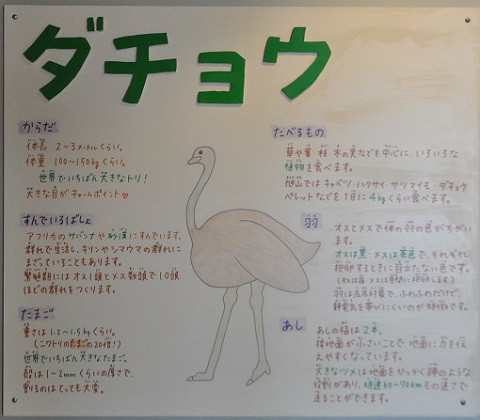 ダチョウ
からだ
体長 2～3メートルくらい。
体重 100～150kgくらい。
世界でいちばん大きなトリ！
大きな目がチャームポイント♡
すんでいるばしょ
アフリカのサバンナや砂漠にすんでいます。
群れで生活し、キリンやシマウマの群れに
まざっていることもあります。
繁殖期にはオス1頭とメス数頭で10頭
ほどの群れをつくります。
たまご
重さは1.2～1.5kgくらい。
(ニワトリのたまごの20倍!)
世界でいちばん大きなたまご。
殻は1～2mmくらいの厚さで、
割るのはとっても大変。
たべるもの
草や葉・枝・木の実などを中心に、いろいろな
植物を食べます。
旭山ではキャベツ・ハクサイ・サツマイモ・ダチョウ
ペレットなどを1日に4kgくらい食べます。
羽
オスとメスで体の羽の色がちがい
ます。
オスは黒・メスは茶色で、それぞれ
抱卵するときに目立たない色です。
羽は左右対象で、ふわふわだけど、
静電気を帯びにくいのが特徴です。
あし
あしの指は2本。
接地面が小さいことで、地面に力を伝
えやすくなっています。
大きなツメは地面をひっかく棒のような
役割があり、時速60～70kmもの速さで
走ることができます。